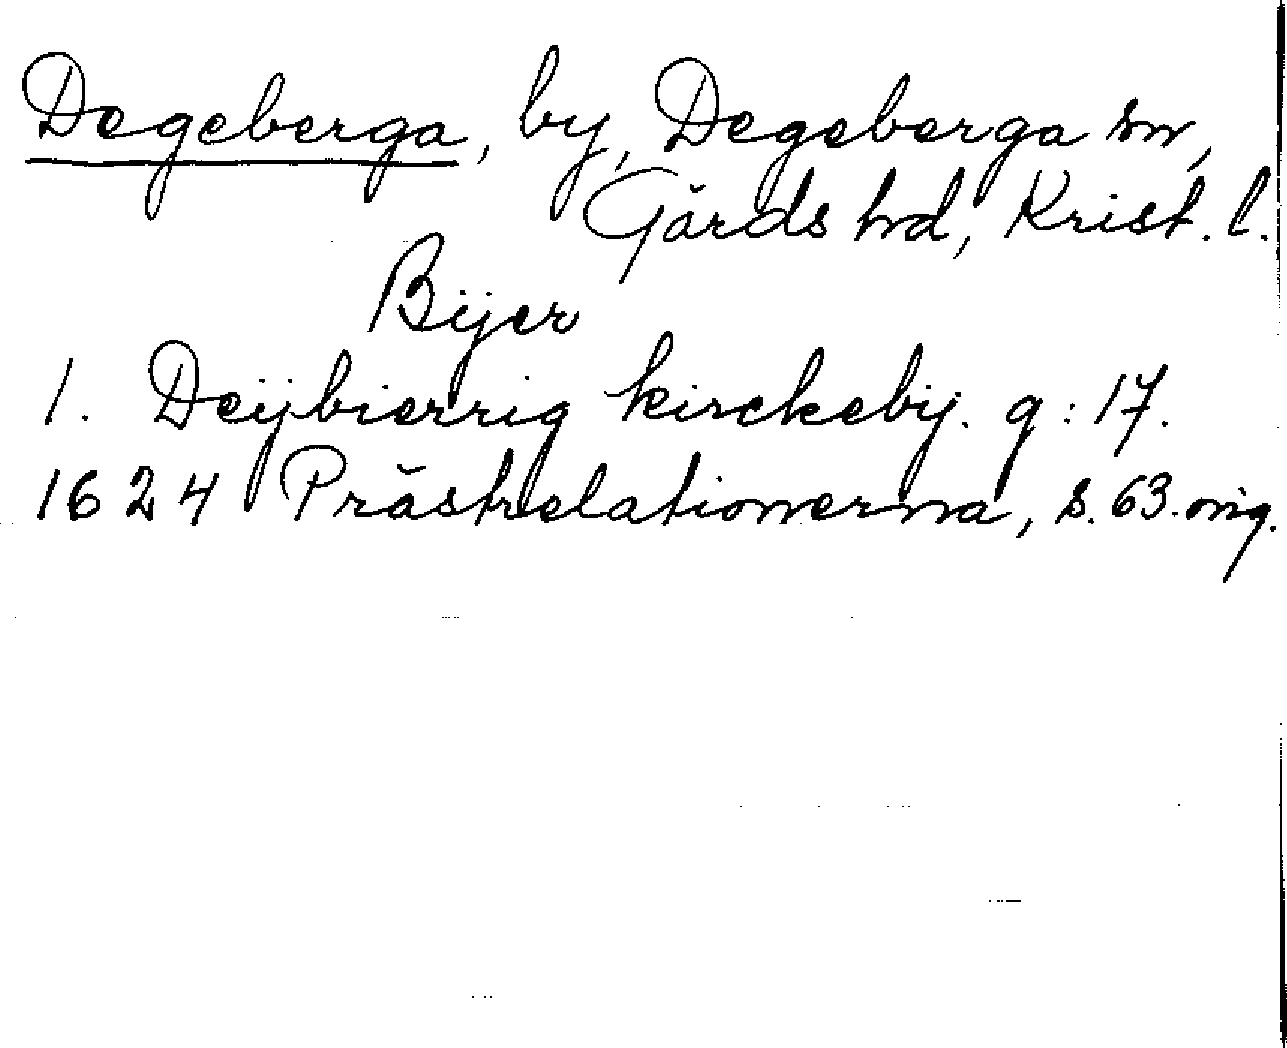 Degeberga, by, Degeberga sn,
Gärds hd, Krist. l.
Bijer
1. Deijbierrig kirckebij. g: 17.
1624 Prästrelationerna, s. 63. orig.